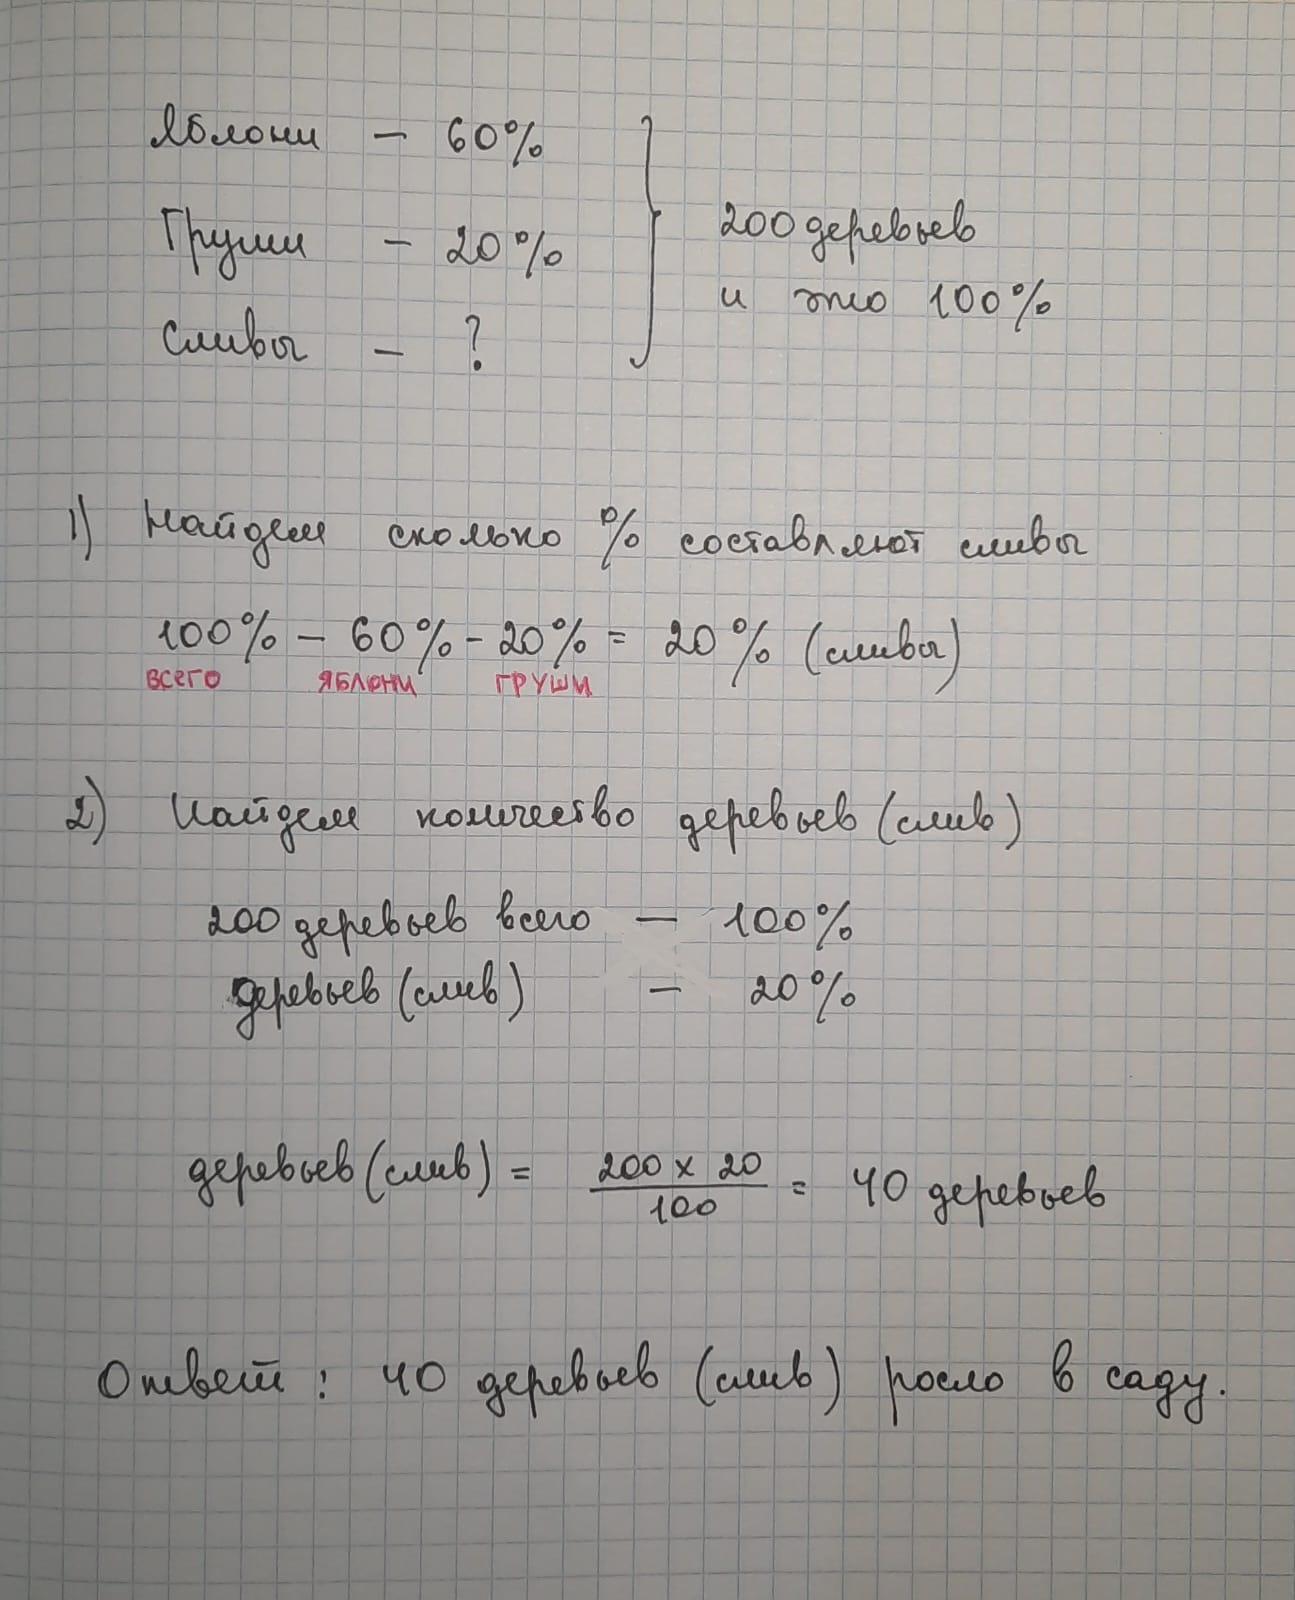 Яблони – 60%
Груши – 20%
Сливы – ?
200 деревьев
и это 100%
1) Найдем сколько % составляют сливы
100% – 60% – 20% = 20% (сливы)
ВСЕГО ЯБЛОНИ ГРУШИ
2) Найдем количество деревьев (слив)
200 деревьев всего – 100%
деревьев (слив) – 20%
деревьев (слив) = 200 х 20 / 100 = 40 деревьев
Ответ: 40 деревьев (слив) росло в саду.